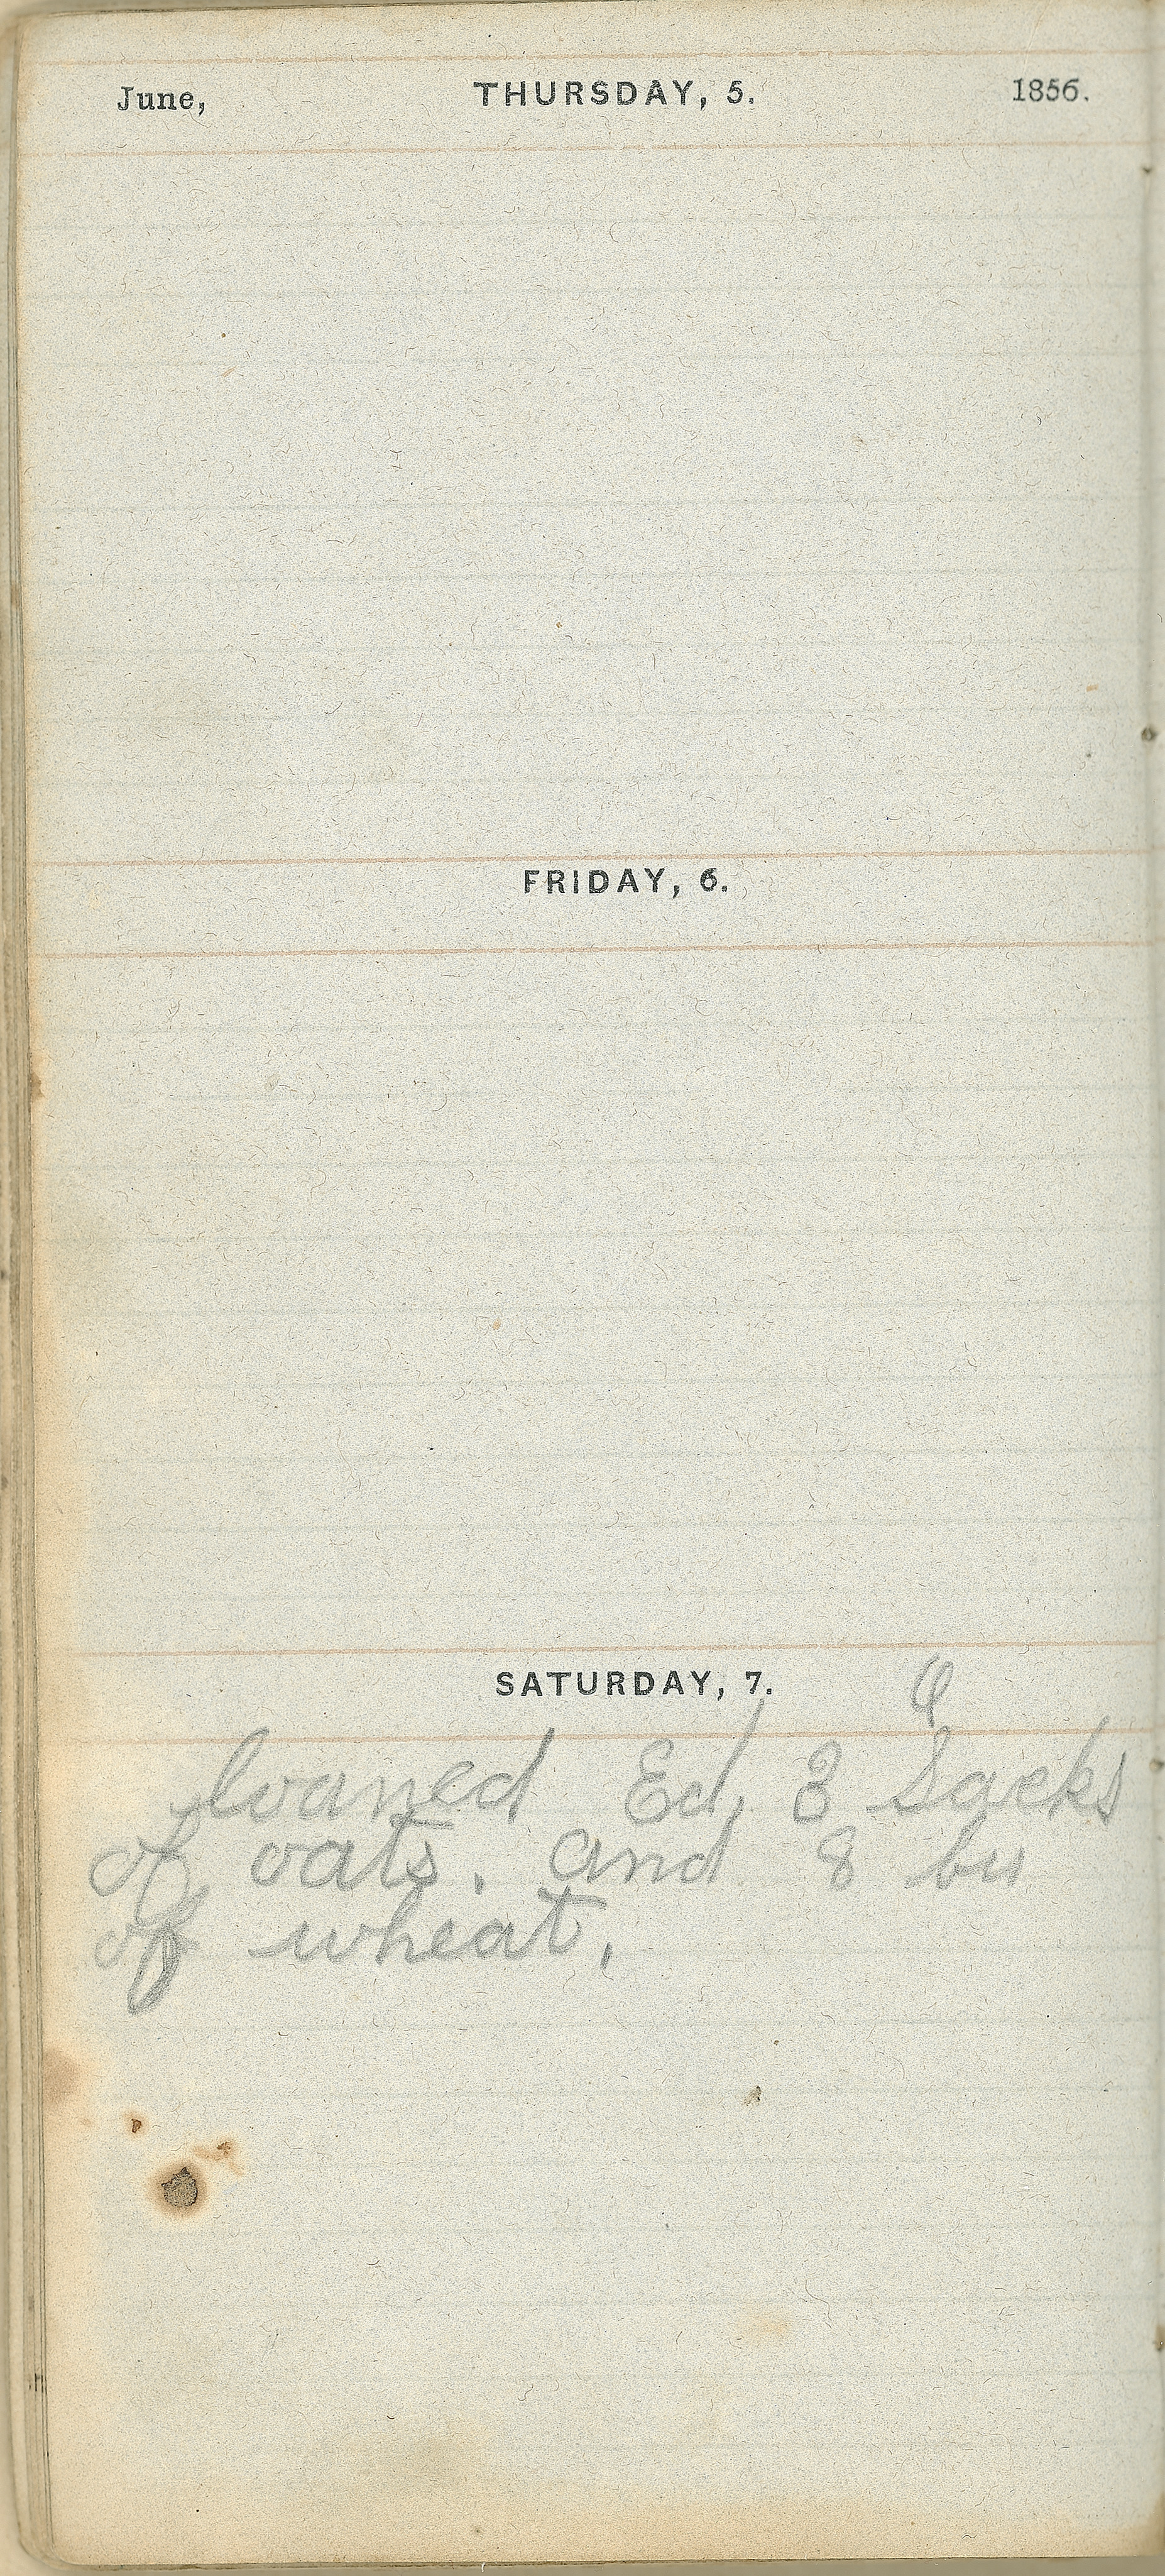 June, THURSDAY, 5. 1856.
FRIDAY, 6.
SATURDAY, 7.
loaned Ed, 3 Sacks
of oats. and 8 bu
of wheat,